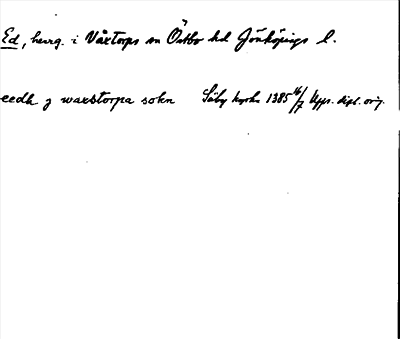 Ed, herrg. i Våxtorps sn Östbo hd Jönköpings l.
eedh j waxstorpa sokn Säby kyrka 1385 16/7 Upps. dipl. orig.